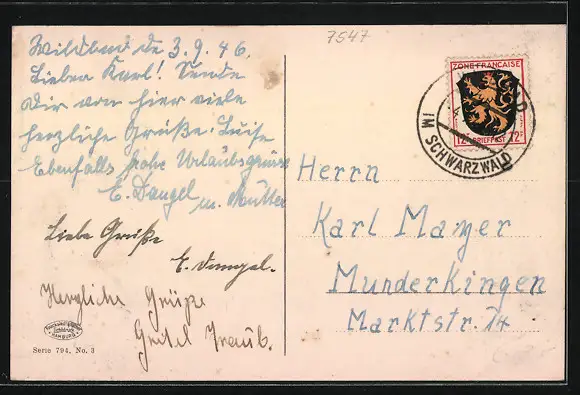 Wildbad de 3.9.46.
Lieber Karl! Sende
Dir von hier viele
herzliche Grüße. Luise
Ebenfalls frohe Urlaubsgrüsse
E. Dangel m. Mutter
Liebe Grüße
E. Dangel.
Herzliche Grüße
Gretel Traub.
Serie 794, No. 3
7547
ZONE FRANÇAISE
12 BRIEFPOST 12
IM SCHWARZWALD
Herrn
Karl Mayer
Munderkingen
Marktstr. 14